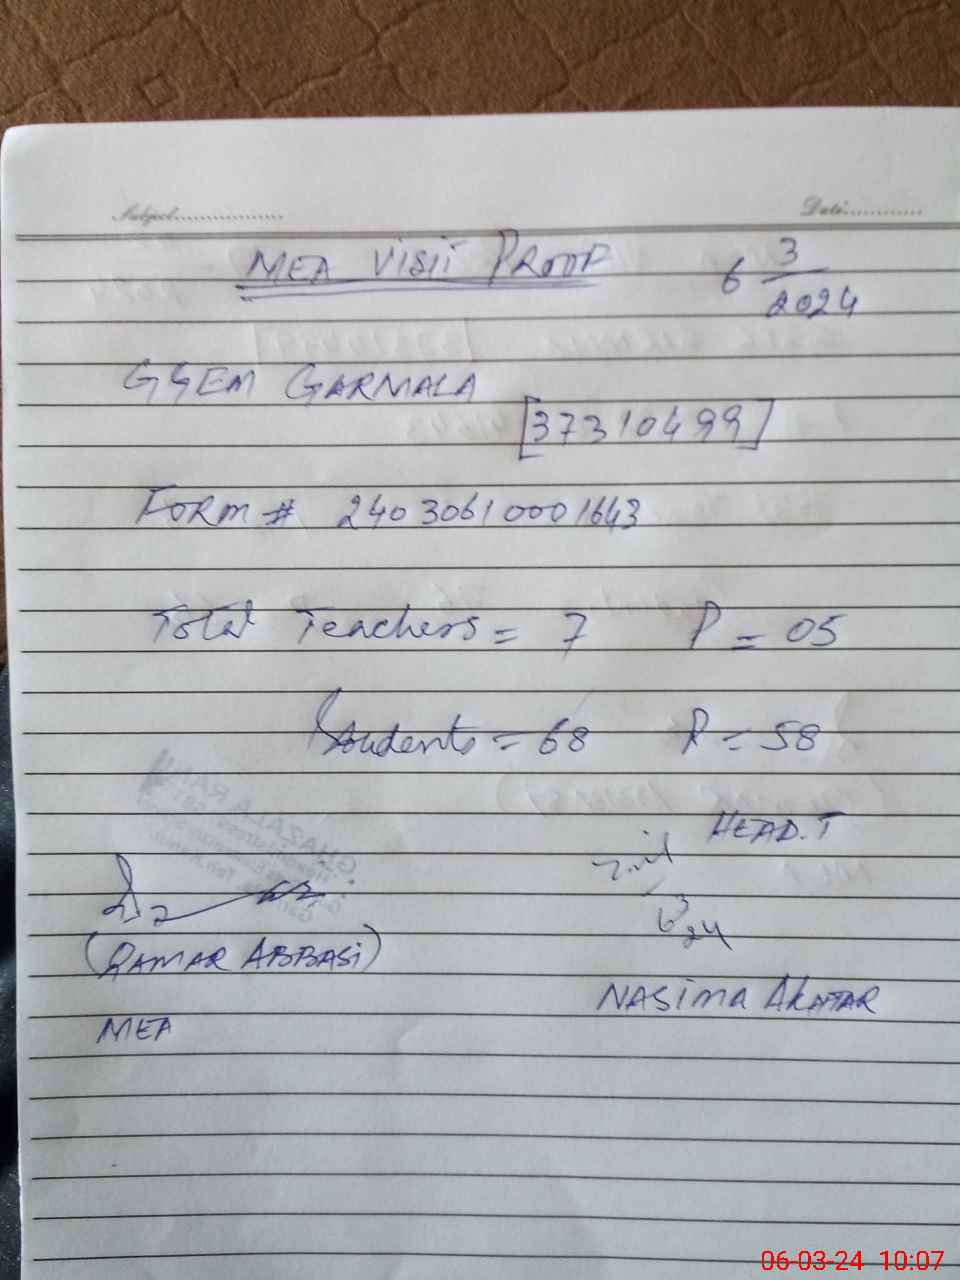 Subject................ Date:............
MEA VISIT PROOF 6 3/2024
GGEM GARMALA
[37310499]
FORM # 24030610001643
Total Teachers = 7 P = 05
Students = 68 P = 58
HEAD.T
6 3 24
(QAMAR ABBASI)
NASIMA AKHTAR
MEA
06-03-24 10:07